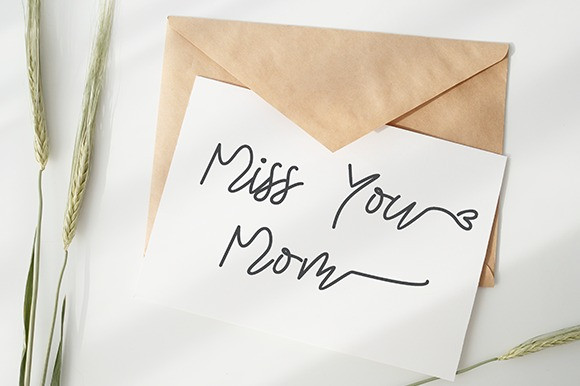 Miss You
Mom